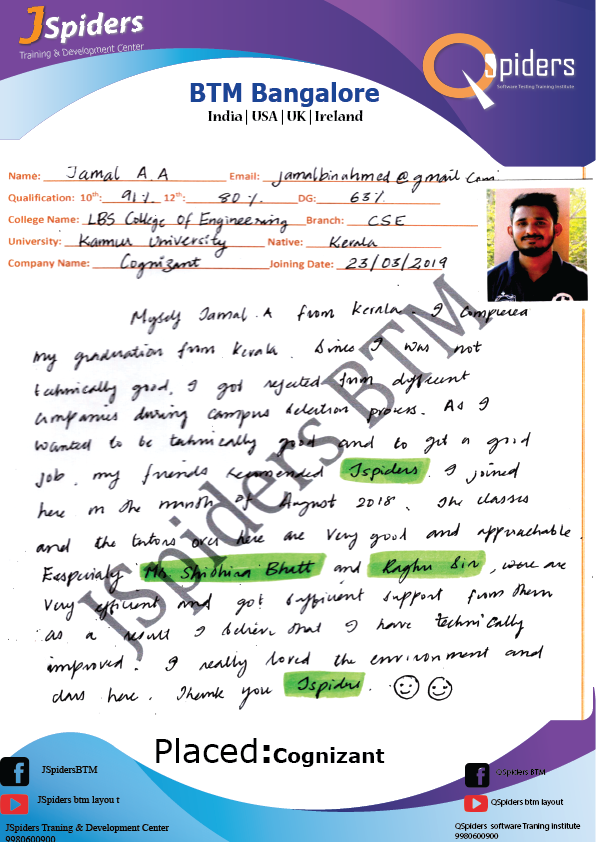 JSpiders
Training & Development Center
QSpiders
Software Testing Training Institute
BTM Bangalore
India|USA|UK|Ireland
Name: Jamal A.A Email: jamalbinahmed@gmail.com
Qualification: 10th: 91% 12th: 80% DG: 63%
College Name: LBS College of Engineering Branch: CSE
University: Kannur University Native: Kerala
Company Name: Cognizant Joining Date: 23/03/2019
Myself Jamal.A from Kerala. I completed
my graduation from Kerala. Since I was not
technically good, I got rejected from different
companies during campus selection process. As I
wanted to be technically good and to get a good
job, my friends recomended Jspiders. I joined
here in the month of August 2018. The classes
and the tutors over here are very good and approachable.
Easpecialy Mr. Shidhira Bhatt and Raghu Sir, were are
very efficient and got sufficient support from them
as a result I believe that I have technically
improved. I really loved the environment and
class here. Thank you Jspiders.
JSpiders BTM
Placed:Cognizant
JSpidersBTM
JSpiders btm layou t
JSpiders Traning & Development Center
9980600900
QSpiders BTM
QSpiders btm layout
QSpiders software Traning institute
9980600900